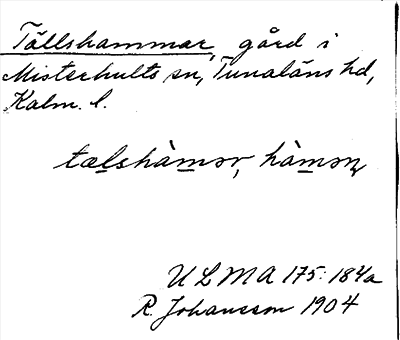 Tällshammar, gård i
Misterhults sn, Tunaläns hd,
Kalm. l.
tælshàmər, hàmən
ULMA 175:184a
R. Johansson 1904